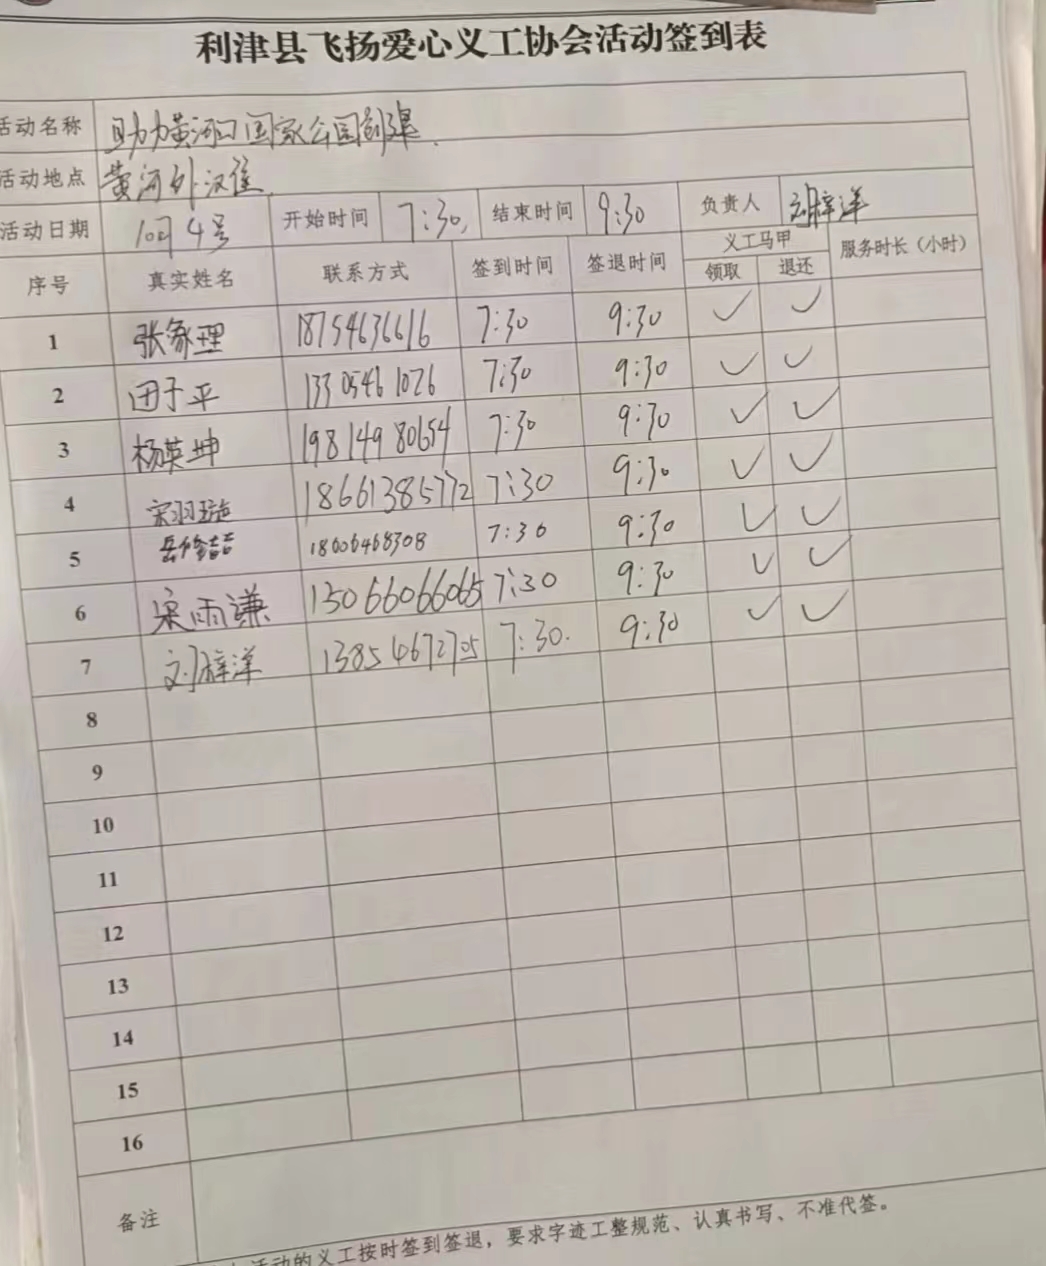 利津县飞扬爱心义工协会活动签到表
活动名称 助力黄河口国家公园创建.
活动地点 黄河外滩
活动日期 10月4号 开始时间 7:30, 结束时间 9:30 负责人 刘梓洋
序号 真实姓名 联系方式 签到时间 签退时间 义工马甲 服务时长（小时）
领取 退还
1 张家理 18754636616 7:30 9:30 ✓ ✓
2 田子平 13305461026 7:30 9:30 ✓ ✓
3 杨英坤 19814980654 7:30 9:30 ✓ ✓
4 宋羽璇 18661385772 7:30 9:30 ✓ ✓
5 岳修喆 18606468308 7:30 9:30 ✓ ✓
6 宋雨谦 15066066065 7:30 9:30 ✓ ✓
7 刘梓洋 13854672705 7:30. 9:30 ✓ ✓
8
9
10
11
12
13
14
15
16
备注
活动的义工按时签到签退，要求字迹工整规范、认真书写、不准代签。